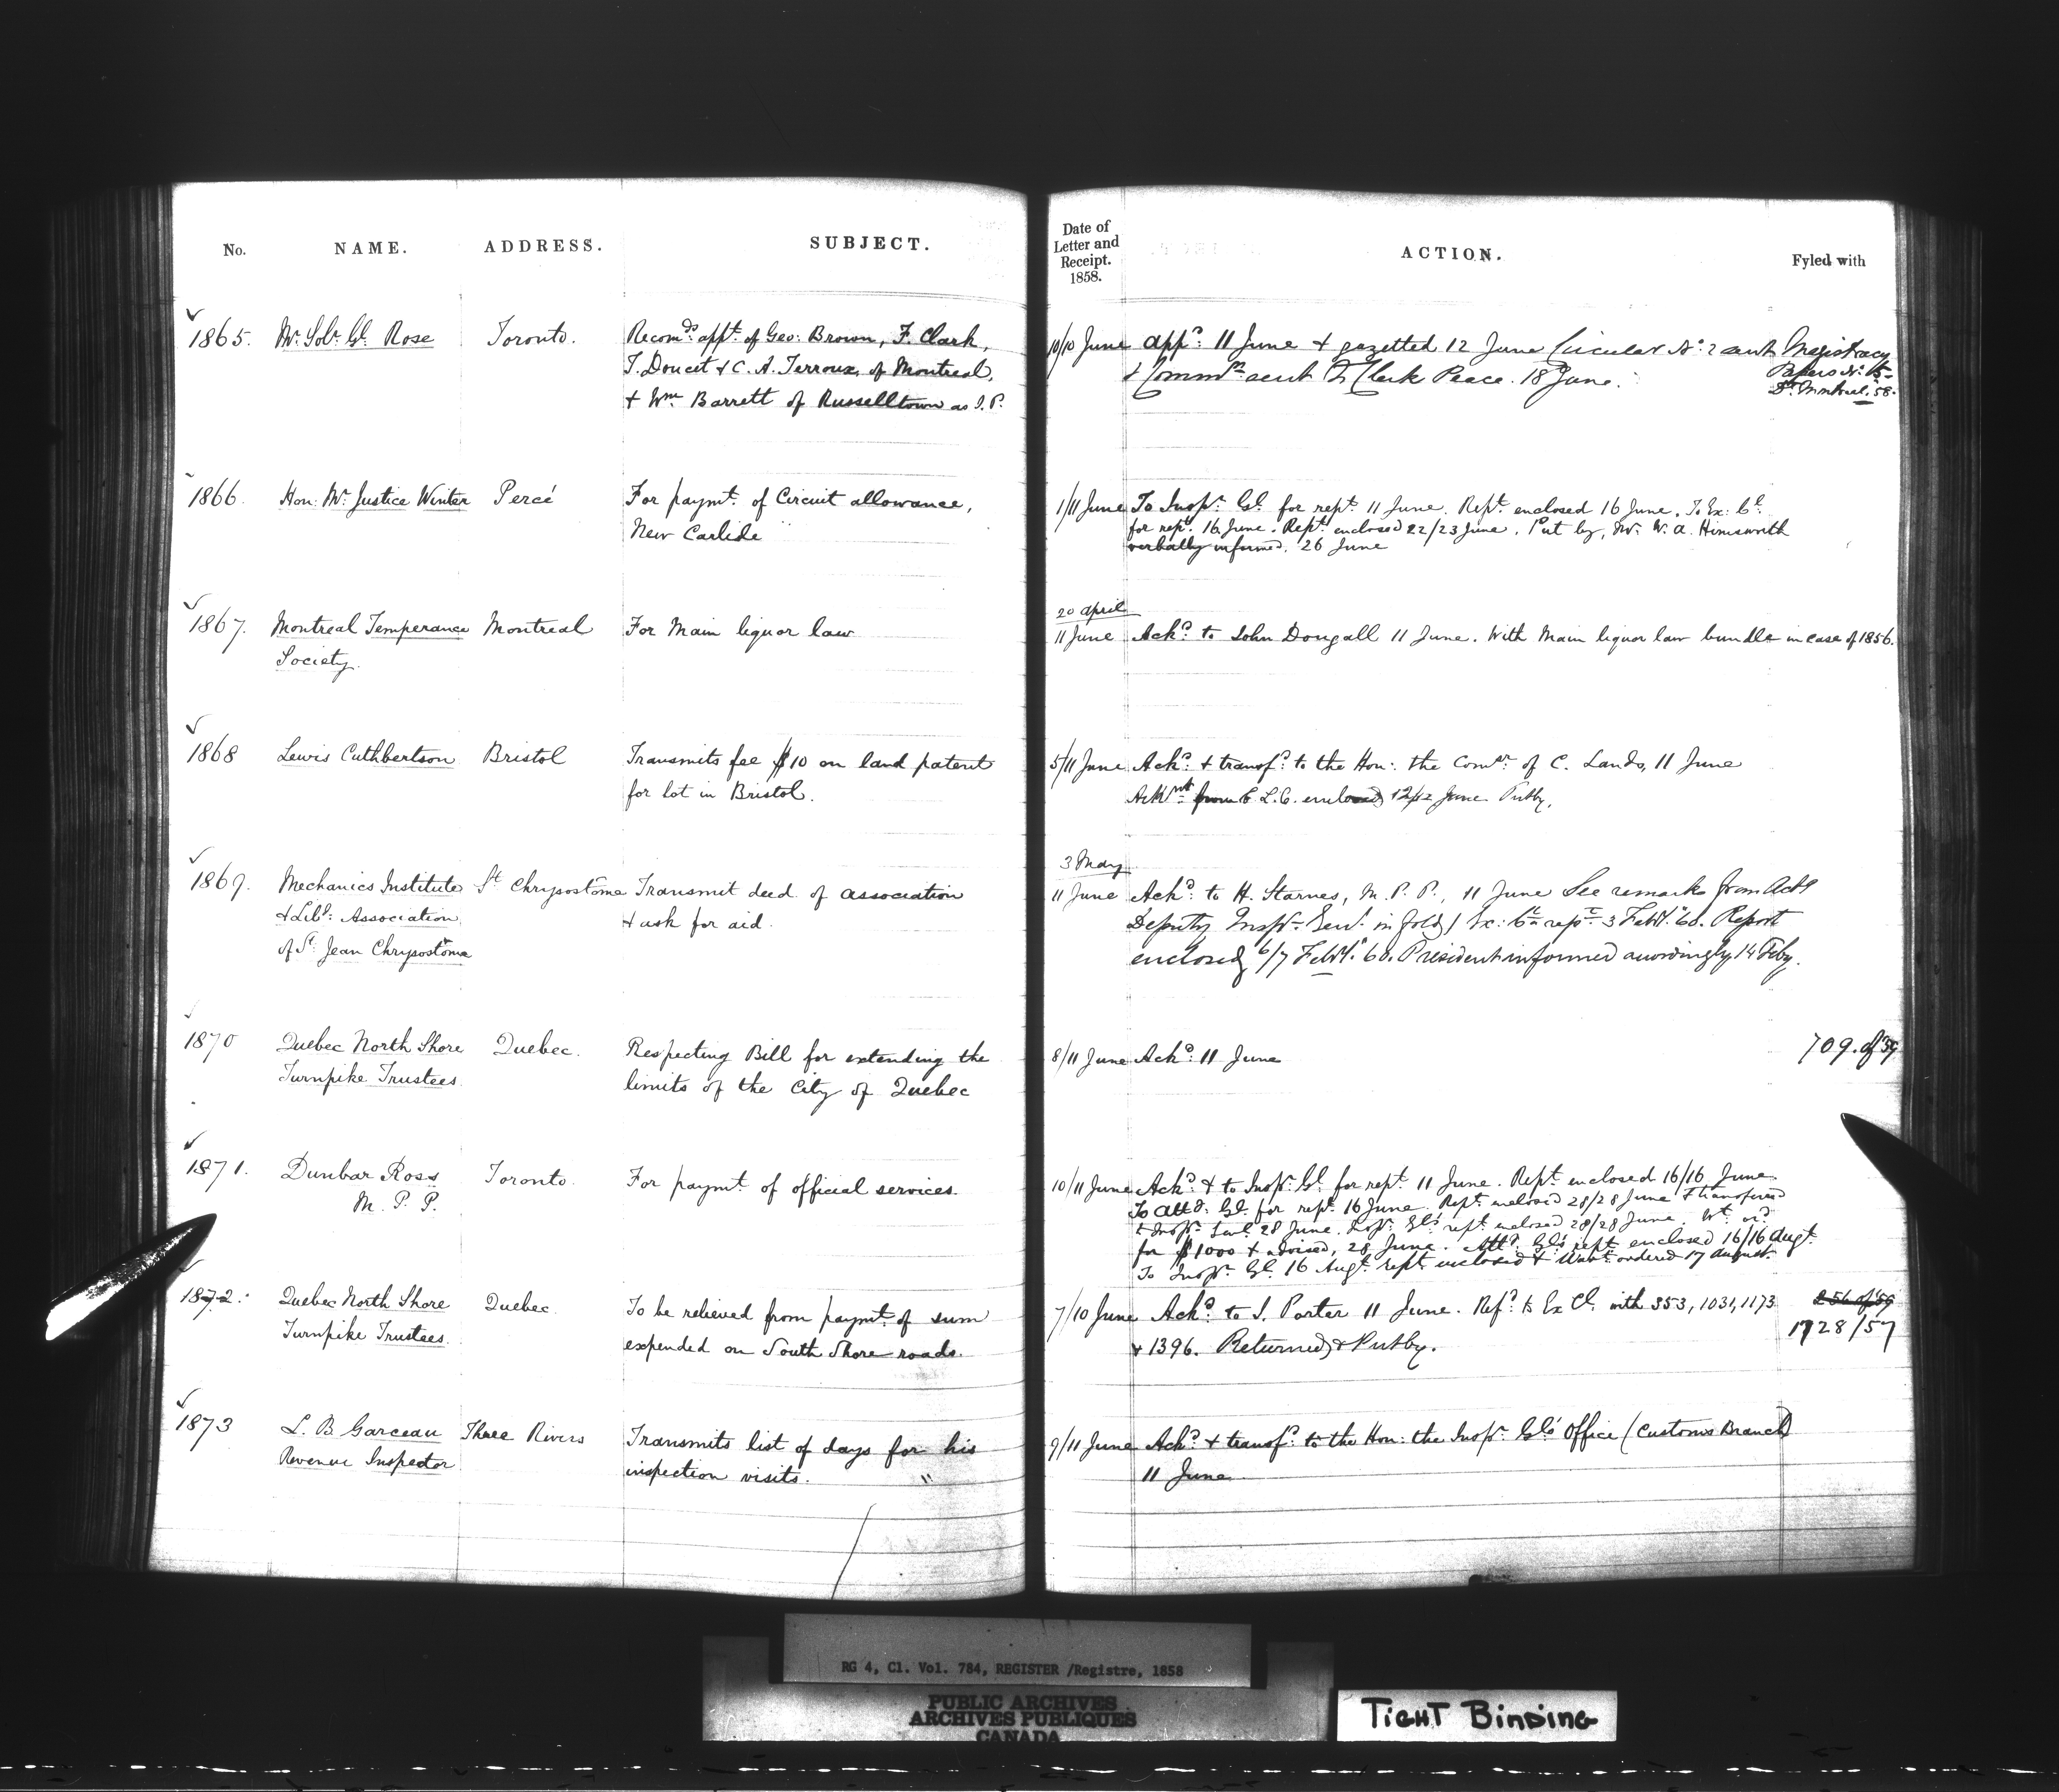 No. NAME. ADDRESS. SUBJECT.
Date of Letter and Receipt. 1858. ACTION. Fyled with
1865. Mr. Solr. Gl. Rose Toronto. Recomds appt. of Geo: Brown, F. Clark,
T. Doucet & C. A. Terroux, of Montreal,
& Wm Barrett of Russelltown as J. P.
10/10 June appd. 11 June & gazetted 12 June Circular No. 2 sent Magistracy
& Commn. sent to Clerk Peace. 18 June. Papers No. 15
Dt. Montreal '58.
1866. Hon: Mr. Justice Winter Percé For paymt. of Circuit allowance,
New Carlisle
1/11 June To Inspr. Gl. for rept. 11 June. Rept. enclosed 16 June. To Ex: Cl.
for rept. 16 June. Rept. enclosed 22/23 June. Put by, Mr. W. A. Himsworth
verbally informed. 26 June
1867. Montreal Temperance Montreal For Main liquor law
Society.
20 April
11 June Ackd. to John Dougall 11 June. With Main liquor law bundle in case of 1856.
1868 Lewis Cuthbertson Bristol Transmits fee $10 on land patent
for lot in Bristol.
5/11 June Ackd. & transfd. to the Hon: the Comsr. of C. Lands, 11 June
Acknt. from C. L. C. enclosed 12/12 June Putby.
1869. Mechanics Institute St Chrysostôme Transmit deed of association
& Liby: Association & ask for aid.
of St. Jean Chrysostôme
3 May
11 June Ackd. to H. Starnes, M. P. P., 11 June See remarks from Actg
Deputy Inspr. Genl. in fold / Ex: Cl. rept. 3 Feby. '60. Report
enclosed 6/7 Feby. '60. President informed accordingly 14 Feby.
1870 Quebec North Shore Quebec. Respecting Bill for extending the
Turnpike Trustees limits of the City of Quebec
8/11 June Ackd. 11 June 709. of '59
1871. Dunbar Ross Toronto. For paymt. of official services.
M. P. P.
10/11 June Ackd. & to Inspr. Gl. for rept. 11 June. Rept. enclosed 16/16 June
To Atty. Gl. for rept. 16 June. Rept. enclosed 28/28 June & transferred
to Inspr. Genl. 28 June. Inspr. Gl's rept. enclosed 28/28 June. Wt. ord.
for $1000 & advised, 28 June. Atty. Gl's rept. enclosed 16/16 Augt.
To Inspr. Gl. 16 Augt. rept. enclosed & Wart. ordered 17 August.
1872. Quebec North Shore Quebec. To be relieved from paymt. of sum
Turnpike Trustees. expended on South Shore roads.
7/10 June Ackd. to J. Porter 11 June. Refd. to Ex Cl. with 353, 1031, 1173 256 of '59
& 1396. Returned & Putby. 1728/57
1873 L. B. Garceau Three Rivers Transmits list of days for his
Revenue Inspector inspection visits. "
9/11 June Ackd. & transfd. to the Hon: the Inspr. Gl's Office (Customs Branch)
11 June
RG 4, C1. Vol. 784, REGISTER /Registre, 1858
PUBLIC ARCHIVES
ARCHIVES PUBLIQUES
CANADA
TIGHT BINDING